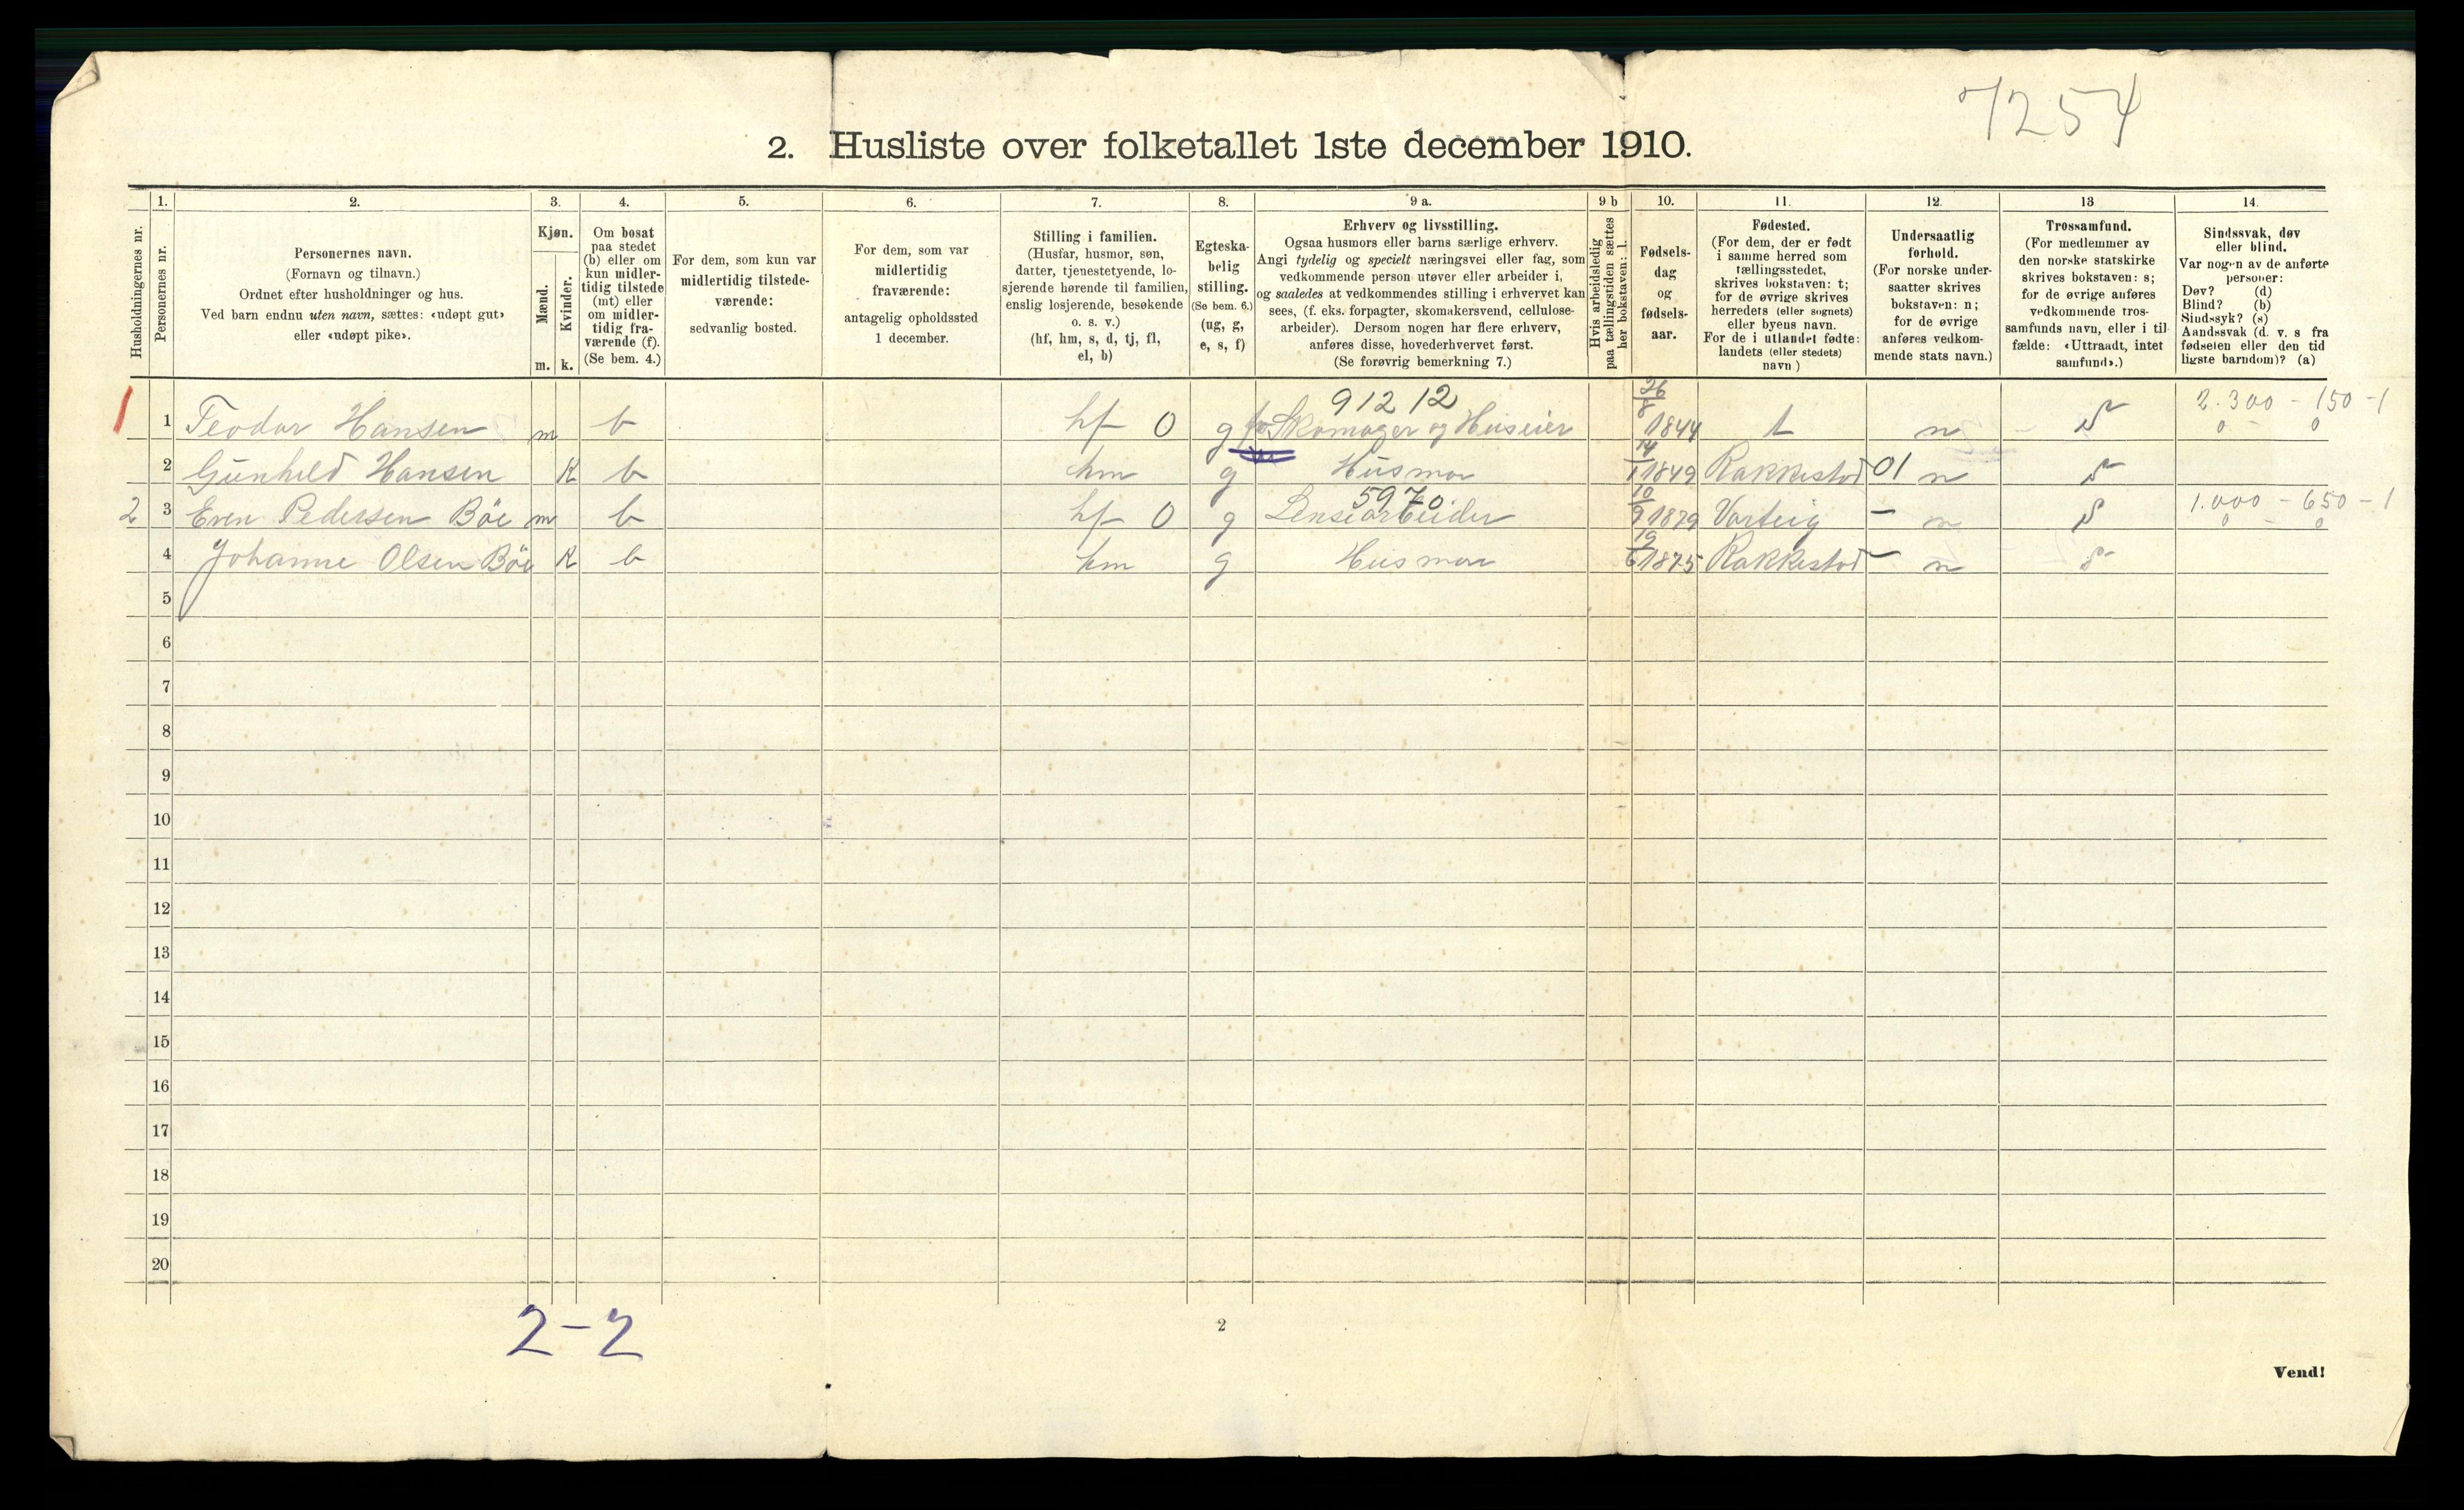 7254
2. Husliste over folketallet 1ste december 1910.
Husholdningernes nr.
1.
Personernes nr.
2.
Personernes navn.
(Fornavn og tilnavn.)
Ordnet efter husholdninger og hus.
Ved barn endnu uten navn, sættes: «udøpt gut»
eller «udøpt pike».
3.
Kjøn.
Mænd.
Kvinder.
m. k.
4.
Om bosat
paa stedet
(b) eller om
kun midler-
tidig tilstede
(mt) eller
om midler-
tidig fra-
værende (f).
(Se bem. 4.)
5.
For dem, som kun var
midlertidig tilstede-
værende:
sedvanlig bosted.
6.
For dem, som var
midlertidig
fraværende:
antagelig opholdssted
1 december.
7.
Stilling i familien.
(Husfar, husmor, søn,
datter, tjenestetyende, lo-
sjerende hørende til familien,
enslig losjerende, besøkende
o. s. v.)
(hf, hm, s, d, tj, fl,
el, b)
8.
Egteska-
belig
stilling.
(Se bem. 6.)
(ug, g,
e, s, f)
9 a.
Erhverv og livsstilling.
Ogsaa husmors eller barns særlige erhverv.
Angi tydelig og specielt næringsvei eller fag, som
vedkommende person utøver eller arbeider i,
og saaledes at vedkommendes stilling i erhvervet kan
sees, (f. eks. forpagter, skomakersvend, cellulose-
arbeider). Dersom nogen har flere erhverv,
anføres disse, hovederhvervet først.
(Se forøvrig bemerkning 7.)
9 b
Hvis arbeidsledig
paa tællingstiden sættes
her bokstaven: l.
10.
Fødsels-
dag
og
fødsels-
aar.
11.
Fødested.
(For dem, der er født
i samme herred som
tællingsstedet,
skrives bokstaven: t;
for de øvrige skrives
herredets (eller sognets)
eller byens navn.
For de i utlandet fødte:
landets (eller stedets)
navn)
12.
Undersaatlig
forhold.
(For norske under-
saatter skrives
bokstaven: n;
for de øvrige
anføres vedkom-
mende stats navn.)
13
Trossamfund.
(For medlemmer av
den norske statskirke
skrives bokstaven: s;
for de øvrige anføres
vedkommende tros-
samfunds navn, eller i til-
fælde: «Uttraadt, intet
samfund».)
14.
Sindssvak, døv
eller blind.
Var nogen av de anførte
personer:
Døv? (d)
Blind? (b)
Sindssyk? (s)
Aandssvak (d. v. s fra
fødselen eller den tid-
ligste barndom)? (a)
91212
1 1 Teodor Hansen m b hf 0 g Skomager og Huseier 26/8 1844 t n s 2.300 - 150 - 1
0 - 0
2 Gunhild Hansen K b hm g Husmor 14/1 1849 Rakkestad 01 n s
5970
2 3 Even Pedersen Böe m b hf 0 g Lensearbeider 10/9 1879 Varteig - n s 1.000 - 650 - 1
0 - 0
4 Johanne Olsen Böe K b hm g Husmor 19/6 1875 Rakkestad - n s
5
6
7
8
9
10
11
12
13
14
15
16
17
18
19
20
2-2
2
Vend!